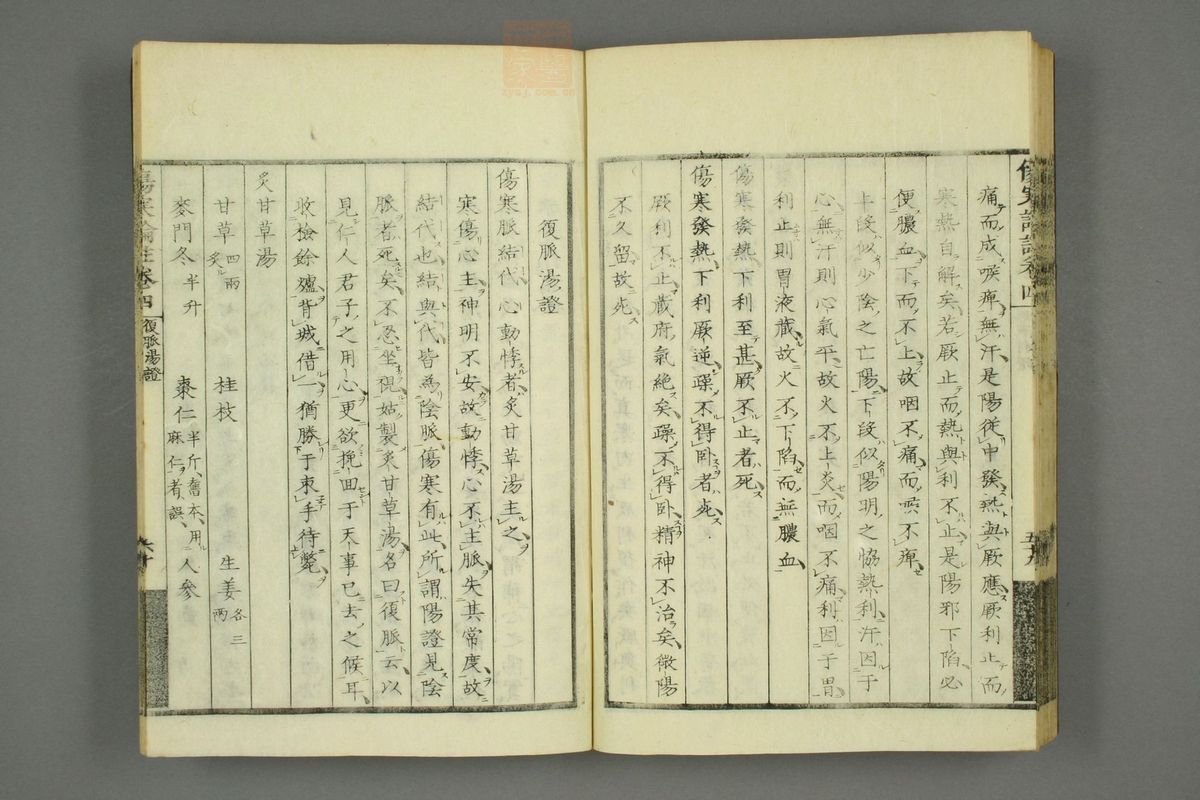 痛而成喉痺無汗是陽從中發熱與厥應厥利止而
寒熱自解矣若厥止而熱與利不止是陽邪下陷必
便膿血下而不上故咽不痛而喉不痺
上段似少陰之亡陽下段似陽明之協熱利汗因于
心無汗則心氣平故火不上炎而咽不痛利因于胃
利止則胃液藏故火不下陷而無膿血
傷寒發熱下利至甚厥不止者死
傷寒發熱下利厥逆躁不得卧者死
厥利不止藏府氣絶矣躁不得卧精神不治矣微陽
不久留故死
復脈湯證
傷寒脈結代心動悸者炙甘草湯主之
寒傷心主神明不安故動悸心不主脈失其常度故
結代也結與代皆為陰脈傷寒有此所謂陽證見陰
脈者死矣不忍坐視姑製炙甘草湯名曰復脈云以
見仁人君子之用心更欲挽回于天事已去之候耳
收撿餘爐背城借一猶勝于束手待斃
炙甘草湯
甘草四兩炙 桂枝 生姜各三兩
麥門冬半升 棗仁半斤舊本用麻仁者誤 人參
傷寒論註卷四 復脈湯證